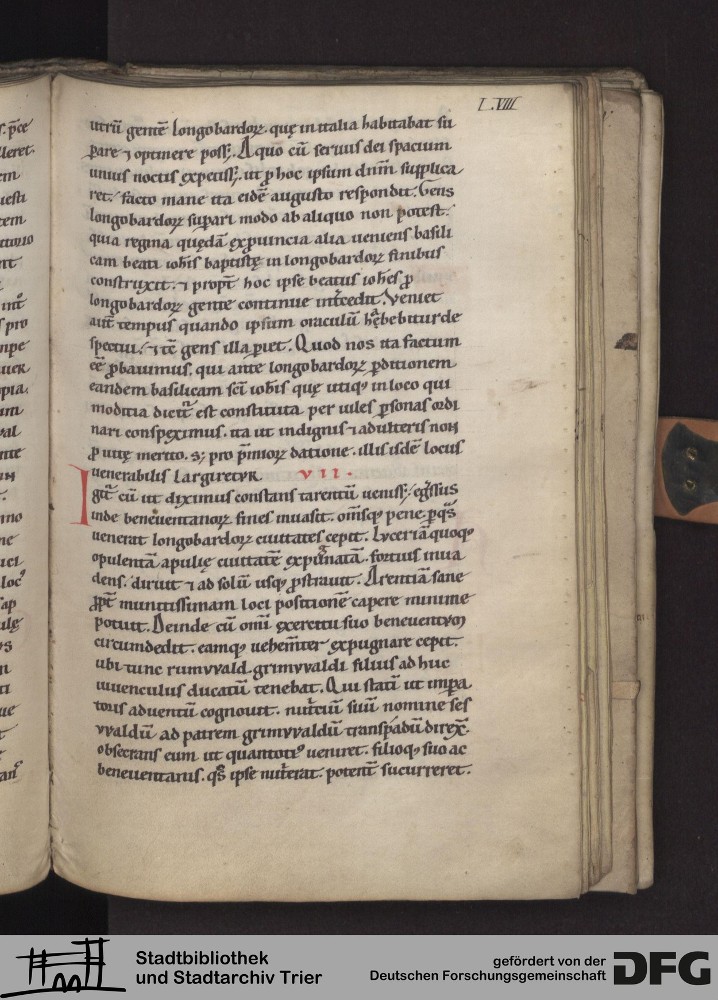 L.VIII
utrū gentē longobardoꝝ. quę in italia habitabat su
ꝑare ⁊ optinere poss&. A quo cū seruus dei spacium
unius noctis expetiss&. ut ꝓ hoc ipsum dn̄m supplica
ret. facto mane ita eidē augusto respondit. Gens
longobardoꝝ suꝑari modo ab aliquo non potest.
quia regina quędā ex ꝓuincia alia ueniens basili
cam beati ioh̄is baptistę in longobardoꝝ finibus
construxit. ⁊ propt̄ hoc ipse beatus ioh̄es ꝓ
longobardoꝝ gente continue int̄cedit. Veniet
aut̄ tempus quando ipsum oraculū habebitur de
spectui. ⁊ tc̄ gens illa ꝑiet. Quod nos ita factum
eē ꝓbauimus. qui ante longobardoꝝ ꝑditionem
eandem basilicam sc̄i ioh̄is quę utiqꝫ in loco qui
moditia dicit᷑ est constituta per uiles ꝑsonas ordi
nari conspeximus. ita ut indignis ⁊ adulteris non
ꝓ uitę merito. sꝫ pro p̄mioꝝ datione. illis isdē locus
uenerabilis largiretur. VII.
Igit᷑ cū ut diximus constans tarentū ueniss&. egr̄ssus
inde beneuentanoꝝ fines inuasit. om̄sqꝫ pene ꝑ q̄s
uenerat longobardoꝝ ciuitates cepit. Luceriā quoqꝫ
opulentā apulię ciuitatē expugnatā. fortius inua
dens. diruit ⁊ ad solū usqꝫ ꝓstrauit. Agentiā sane
ꝓpt̄ munitissimam loci positionē capere minime
potuit. Deinde cū om̄i exercitu suo beneuentum
circumdedit. eamqꝫ uehem̄ter expugnare cepit.
ubi tunc rumvvald grimvvaldi filius ad huc
iuuenculus ducatū tenebat. Qui statī ut impa
toris aduentū cognouit. nutriciū suū nomine ses
vvaldū ad patrem grimvvaldū transpadū direx̄.
obsecrans eum ut quantoti᷒ ueniret. filioqꝫ suo ac
beneuentanis. q̄s ipse nutrierat. potent̄ sucurreret.
Stadtbibliothek
und Stadtarchiv Trier
gefördert von der
Deutschen Forschungsgemeinschaft
DFG